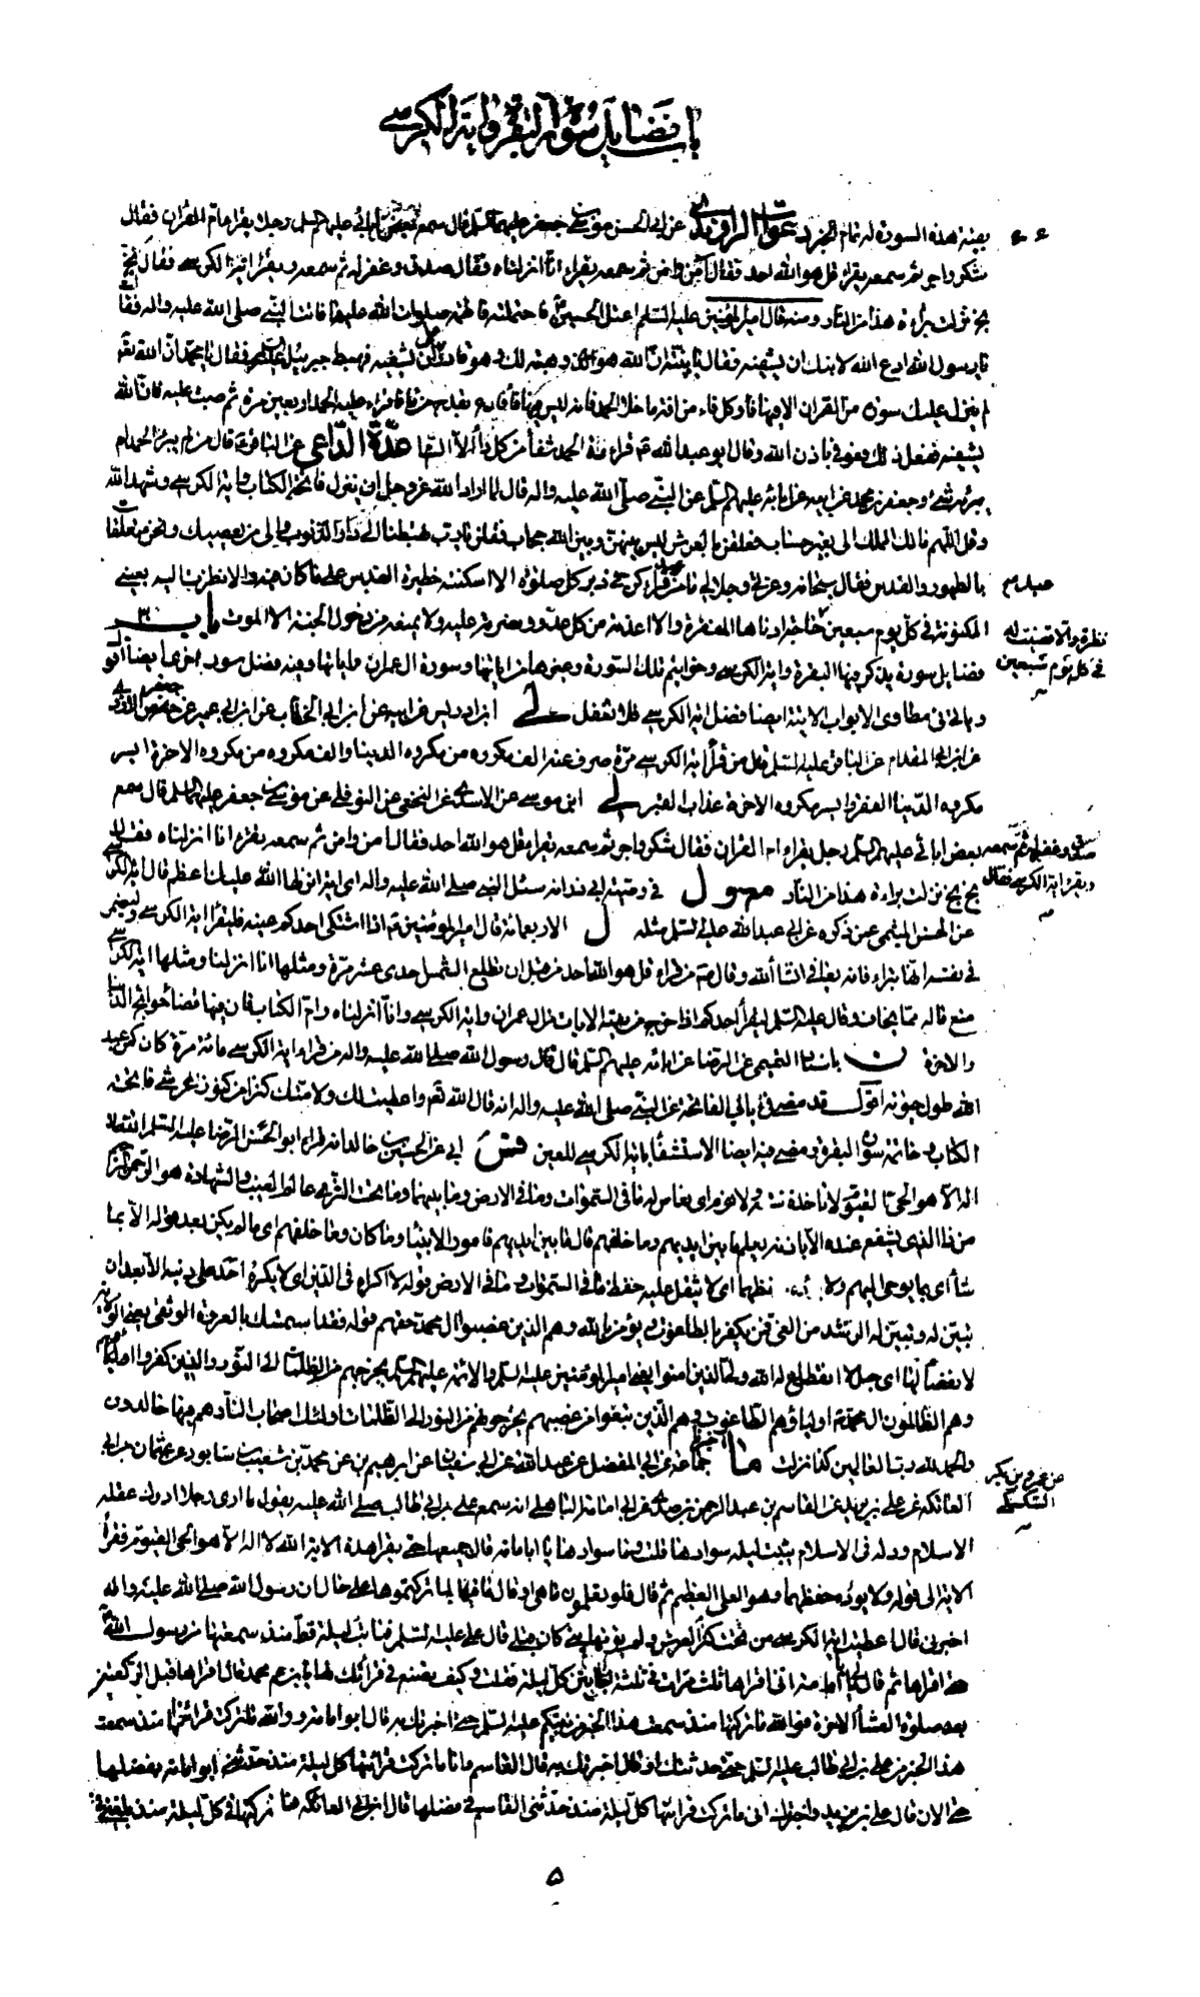 باب فضايل سورة البقرة واية الكرسي
بعينه هذه السورة له تمام الخبر دعوات الراوندي عن ابي الحسن موسى بن جعفر عليهما السلم قال سمع بعض آبائي عليهم السلم رجلا يقرا ام القران فقال
شكر واجر ثم سمعه يقراء قل هو الله احد فقال آمن وامن ثم سمعه يقراء انا انزلناه فقال صدق وغفر له ثم سمعه يقرا اية الكرسي فقال بخ
بخ نزلت براءة هذا من النار ومنه قال امير المؤمنين عليه السلم اعتل الحسين فاحتملته فاطمة صلوات الله عليها فاتت النبي صلى الله عليه واله فقالت
يا رسول الله ادع الله لابنك ان يشفيه فقال يا بنية ان الله هو الذي وهبه لك وهو قادر على ان يشفيه فهبط جبرئيل فقال يا محمد ان الله تع
لم ينزل عليك سورة من القران الا فيها فاء وكل فاء من افة ما خلا الحمد فانه ليس فيها فاء فادع بقدح من ماء فاقراء عليه الحمد اربعين مرة ثم صب عليه فان الله
يشفيه ففعل ذلك فعوفي باذن الله وقال ابو عبد الله ع قراءة الحمد شفاء من كل داء الا السام عدة الداعي عن الباقر ع قال من لم يبرئه الحمد لم
يبرئه شئ وجعفر بن محمد عن ابيه عن ابائه عليهم السلم عن النبي صلى الله عليه واله قال لما اراد الله عز وجل ان ينزل فاتحة الكتاب واية الكرسي وشهد الله
وقل اللهم مالك الملك الى بغير حساب تعلقن بالعرش ليس بينهن وبين الله حجاب فقلن يا رب تهبطنا الى دار الذنوب والى من يعصيك ونحن متعلقات
بالطهور والقدس فقال سبحانه وعزتي وجلالي ما من عبد قراكن في دبر كل صلوة الا اسكنته حظيرة القدس على ما كان فيه والا نظرت اليه بعيني
عبد م
المكنونة في كل يوم سبعين حاجة ادناها المغفرة والا اعذته من كل عدو ونصرته عليه ولا يمنعه من دخول الجنة الا الموت باب
نظرة والا قضيت له
في كل يوم سبعين
فضايل سورة يذكر فيها البقرة واية الكرسي وخواتيم تلك السورة وغيرها من اياتها وسورة ال عمران واياتها وفيه فضل سور اخرى ايضا اقول
وياتي في مطاوي الابواب الاتية ايضا فضل اية الكرسي فلا تغفل لي ابن ادريس عن ابيه عن ابن ابي الخطاب عن ابن ابي عمير عن جعفر الازدي
عن ابن ابي المقدام عن الباقر عليه السلم قال من قرأ اية الكرسي مرة صرف عنه الف مكروه من مكروه الدنيا والف مكروه من مكروه الاخرة ايسر
مكروه الدنيا الفقر وايسر مكروه الاخرة عذاب القبر لي ابن موسى عن الاسدي عن النخعي عن النوفلي عن موسى بن جعفر عليهما السلم قال سمع
بعض ابائي عليهم السلم رجل يقراء ام القران فقال شكر واجر ثم سمعه يقراء قل هو الله احد فقال امن وامن ثم سمعه يقراء انا انزلناه فقال
صدق وغفر له ثم سمعه
ويقرا اية الكرسي فقال
بخ بخ نزلت براءة هذا من النار مع ل في وصية ابي ذر انه سئل النبي صلى الله عليه واله اي اية انزلها الله عليك اعظم قال اية الكرسي
عن الحسن الميثمي عمن ذكره عن ابي عبد الله عليه السلم مثله ل الاربعمائة قال امير المؤمنين ع اذا اشتكى احدكم عينه فليقرا اية الكرسي وليضمر
في نفسه انها تبراء فانه يعافى انشاء الله وقال ع من قراء قل هو الله احد من قبل ان تطلع الشمس احدى عشرة مرة ومثلها انا انزلنا ومثلها اية الكرسي
منع ماله مما يخاف وقال عليه السلم ليقرأ احدكم اذا خرج من بيته الايات من ال عمران واية الكرسي وانا انزلناه وام الكتاب فان فيها قضاء حوائج الدنيا
والاخرة ن باسناد التميمي عن الرضا عن ابائه عليهم السلم قال قال رسول الله صلى الله عليه واله من قراء اية الكرسي مائة مرة كان كمن عبد
الله طول حيوته اقول قد مضى في باب الفاتحة عن النبي صلى الله عليه واله انه قال الله تع واعطيت لك ولامتك كنزا من كنوز عرشي فاتحة
الكتاب وخاتمة سورة البقرة ومضى فيه ايضا الاستشفاء باية الكرسي للعين فس ابي عن الحسين بن خالد انه قراء ابو الحسن الرضا عليه السلم الله لا
اله الا هو الحي القيوم لا تاخذه سنة ولا نوم اي نعاس له ما في السموات وما في الارض وما بينهما وما تحت الثرى عالم الغيب والشهادة هو الرحمن الرحيم
من ذا الذي يشفع عنده الا باذنه يعلم ما بين ايديهم وما خلفهم قال ما بين ايديهم فامور الانبياء وما كان وما خلفهم اي ما لم يكن بعد قوله الا بما
شاء اي بما يوحي اليهم ولا يؤده حفظهما اي لا يثقل عليه حفظ ما في السموات وما في الارض قوله لا اكراه في الدين اي لا يكره احد على دينه الا بعد ان
تبين له وتبين له الرشد من الغي فمن يكفر بالطاغوت ويؤمن بالله وهم الذين غصبوا ال محمد حقهم قوله فقد استمسك بالعروة الوثقى يعني الولاية
لا انفصام لها اي حبل لا انقطاع له الله ولي الذين امنوا يعني امير المؤمنين عليه السلم والائمة عليهم السلم يخرجهم من الظلمات الى النور والذين كفروا اولياؤهم
وهم الظالمون ال محمد ع اولياؤهم الطاغوت وهم الذين تبعوا من غصبهم يخرجونهم من النور الى الظلمات اولئك اصحاب النار هم فيها خالدون
والحمد لله رب العالمين كذا نزلت ما جماعة عن ابي المفضل عن عبد الله بن ابي سفيان عن ابراهيم بن عن محمد بن شعيب بن سابور عن عثمان بن ابي
عن عمرو بن بكر
السكسكي
العاتكه عن علي بن يزيد عن القاسم بن عبد الرحمن عن ابي امامة الباهلي انه سمع علي بن ابي طالب صلى الله عليه يقول ما ارى رجلا ادرك عقله
الاسلام وولد في الاسلام يبيت ليلة سوادها قلت وما سوادها يا ابا امامه قال جميعها حتى يقرا هذه الاية الله لا اله الا هو الحي القيوم فقرأ
الاية الى قوله ولا يؤده حفظهما وهو العلي العظيم ثم قال فلو تعلمون ما هي او قال ما فيها لما تركتموها على حال ان رسول الله صلى الله عليه واله
اخبرني قال اعطيت اية الكرسي من كنز تحت العرش ولم يؤتها نبي كان قبلي قال علي عليه السلم فما بت ليلة قط منذ سمعتها من رسول الله
حتى اقراها ثم قال يا ابا امامه اني اقراها ثلث مرات في ثلثة احايين كل ليلة فقلت وكيف تصنع في قرائتك لها يا بن عم محمد قال اقراها قبل الركعتين
بعد صلوة العشاء الاخرة فوالله ما تركتها منذ سمعت هذا الخبر من نبيكم عليه السلم حتى اخبرتك به قال ابو امامه ووالله ما تركت قرائتها منذ سمعت
هذا الخبر من علي بن ابي طالب عليه السلم حتى حدثتك او قال اخبرتك به قال القاسم وانا ما تركت قرائتها كل ليلة منذ حدثني ابو امامه بفضلها
حتى الان قال علي بن يزيد واخبرك اني ما تركت قرائتها كل ليلة منذ حدثني القاسم في فضلها قال ابن ابي العاتكه فما تركتها في كل ليلة منذ بلغني في
۵